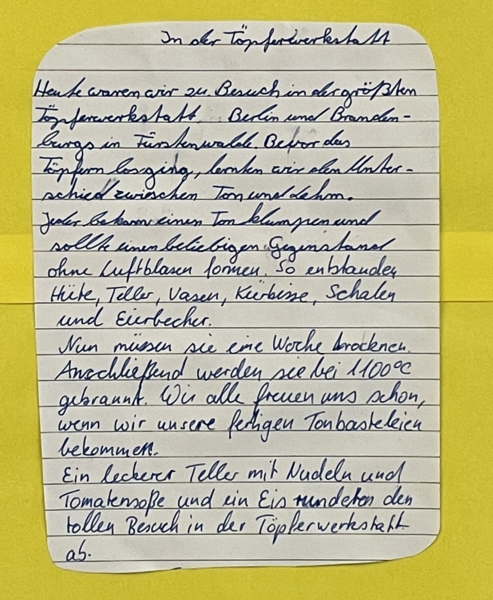 In der Töpferwerkstatt
Heute waren wir zu Besuch in der größten
Töpferwerkstatt Berlin und Branden-
burgs in Fürstenwalde. Bevor das
Töpfern losging, lernten wir den Unter-
schied zwischen Ton und Lehm.
Jeder bekam einen Tonklumpen und
sollte einen beliebigen Gegenstand
ohne Luftblasen formen. So entstanden
Hüte, Teller, Vasen, Kürbisse, Schalen
und Eierbecher.
Nun müssen sie eine Woche trocknen.
Anschließend werden sie bei 1100°C
gebrannt. Wir alle freuen uns schon,
wenn wir unsere fertigen Tonbasteleien
bekommen.
Ein leckerer Teller mit Nudeln und
Tomatensoße und ein Eis rundeten den
tollen Besuch in der Töpferwerkstatt
ab.